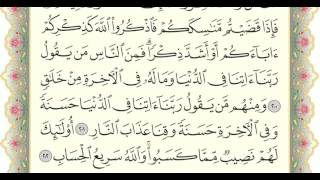 فَإِذَا قَضَيْتُم مَّنَـٰسِكَكُمْ فَٱذْكُرُوا۟ ٱللَّهَ كَذِكْرِكُمْ
ءَابَآءَكُمْ أَوْ أَشَدَّ ذِكْرًا ۗ فَمِنَ ٱلنَّاسِ مَن يَقُولُ
رَبَّنَآ ءَاتِنَا فِى ٱلدُّنْيَا وَمَا لَهُۥ فِى ٱلْـَٔاخِرَةِ مِنْ خَلَـٰقٍ
٢٠٠ وَمِنْهُم مَّن يَقُولُ رَبَّنَآ ءَاتِنَا فِى ٱلدُّنْيَا حَسَنَةً
وَفِى ٱلْـَٔاخِرَةِ حَسَنَةً وَقِنَا عَذَابَ ٱلنَّارِ ٢٠١ أُو۟لَـٰٓئِكَ
لَهُمْ نَصِيبٌ مِّمَّا كَسَبُوا۟ ۚ وَٱللَّهُ سَرِيعُ ٱلْحِسَابِ ٢٠٢